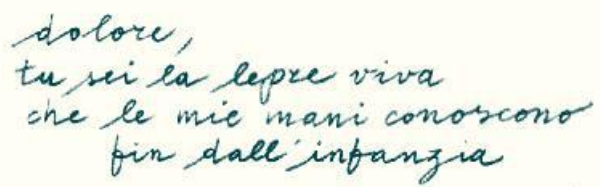 dolore,
tu sei la lepre viva
che le mie mani conoscono
fin dall'infanzia